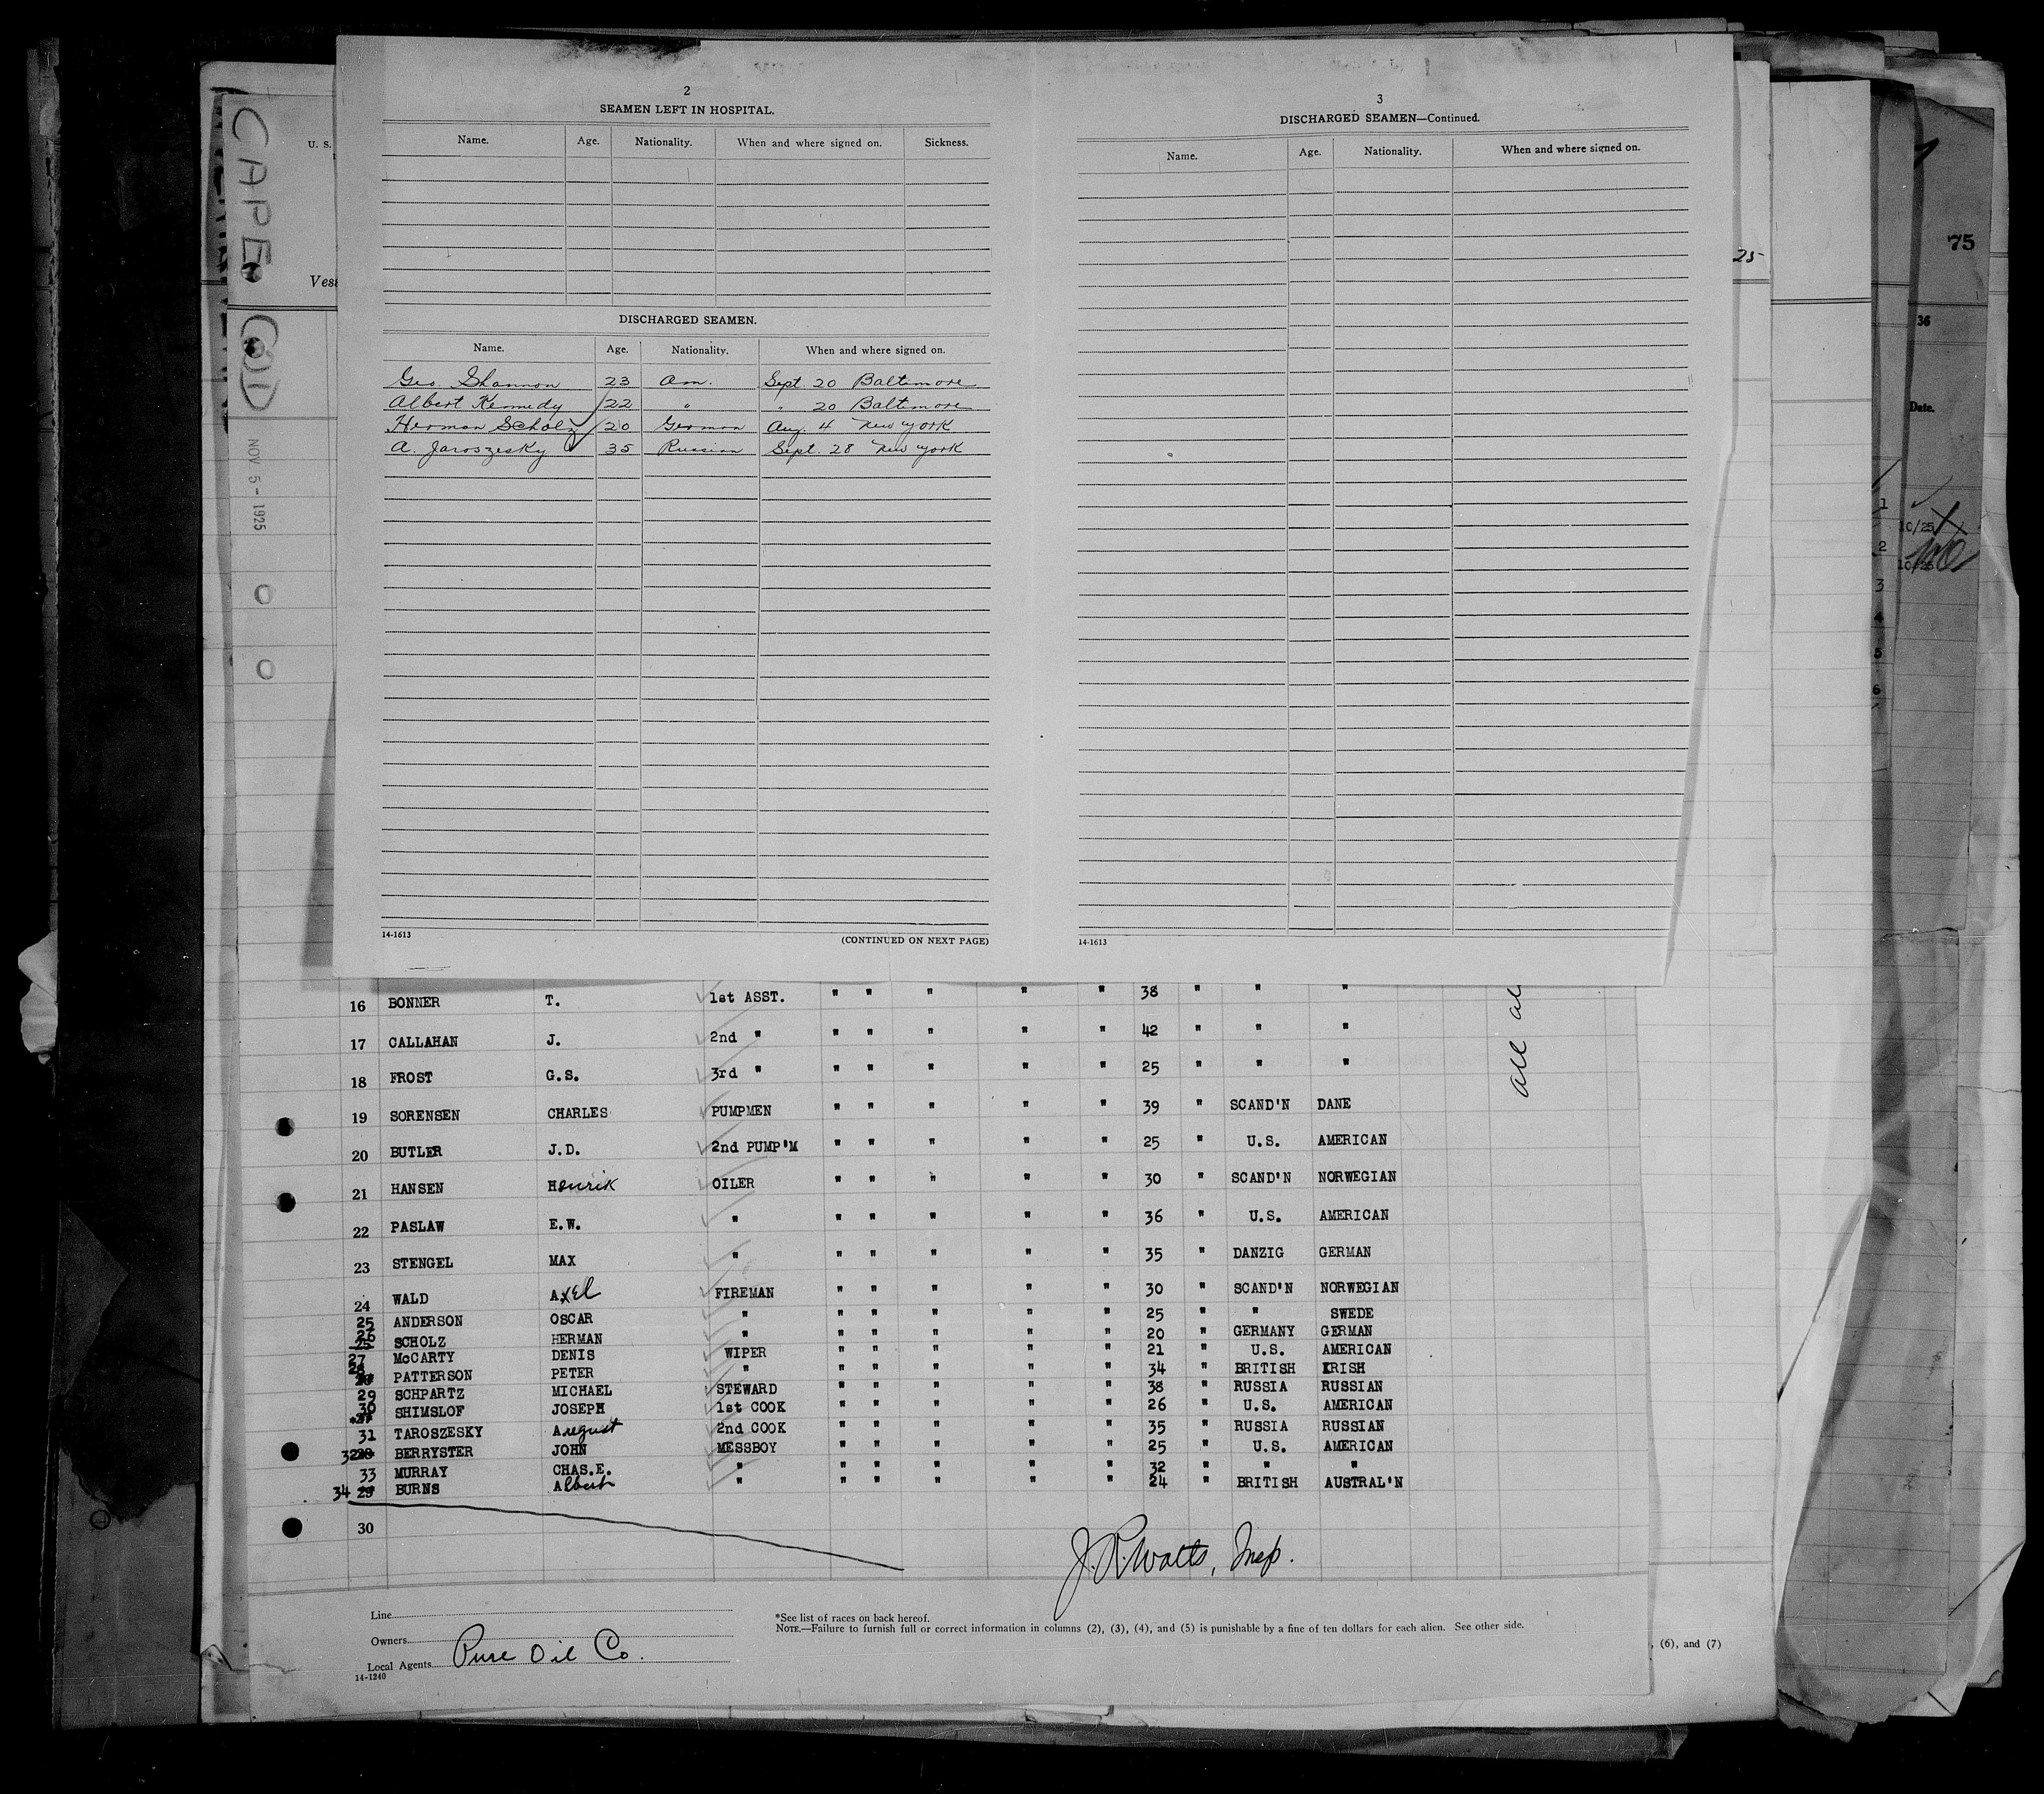 2
SEAMEN LEFT IN HOSPITAL.
Name. Age. Nationality. When and where signed on. Sickness.
DISCHARGED SEAMEN.
Name. Age. Nationality. When and where signed on.
Geo. Shannon 23 Am. Sept. 20 Baltimore
Albert Kennedy 22 " " 20 Baltimore
Herman Scholz 20 German Aug. 4 New York
A. Jaroszesky 35 Russian Sept. 28 New York
14-1613
(CONTINUED ON NEXT PAGE)
3
DISCHARGED SEAMEN—Continued.
Name. Age. Nationality. When and where signed on.
14-1613
CAPE COD
NOV 5 - 1925
U. S.
Vess
25
75
36
Date.
1
10/25
2
10/25
3
4
5
6
all al
16 BONNER T. 1st ASST. " " " " " 38 " " "
17 CALLAHAN J. 2nd " " " " " " 42 " " "
18 FROST G.S. 3rd " " " " " " 25 " " "
19 SORENSEN CHARLES PUMPMEN " " " " " 39 " SCAND'N DANE
20 BUTLER J.D. 2nd PUMP'M " " " " " 25 " U.S. AMERICAN
21 HANSEN Henrik OILER " " " " " 30 " SCAND'N NORWEGIAN
22 PASLAW E.W. " " " " " " 36 " U.S. AMERICAN
23 STENGEL MAX " " " " " " 35 " DANZIG GERMAN
24 WALD Axel FIREMAN " " " " " 30 " SCAND'N NORWEGIAN
25 ANDERSON OSCAR " " " " " " 25 " " SWEDE
26 SCHOLZ HERMAN " " " " " " 20 " GERMANY GERMAN
27 McCARTY DENIS WIPER " " " " " 21 " U.S. AMERICAN
28 PATTERSON PETER " " " " " " 34 " BRITISH IRISH
29 SCHPARTZ MICHAEL STEWARD " " " " " 38 " RUSSIA RUSSIAN
30 SHIMSLOF JOSEPH 1st COOK " " " " " 26 " U.S. AMERICAN
31 TAROSZESKY August 2nd COOK " " " " " 35 " RUSSIA RUSSIAN
32 BERRYSTER JOHN MESSBOY " " " " " 25 " U.S. AMERICAN
33 MURRAY CHAS.E. " " " " " " 32 " " "
34 29 BURNS Albert " " " " " " 24 " BRITISH AUSTRAL'N
30
J. R. Watts, Insp.
Line
Owners
Local Agents
Pure Oil Co.
14-1240
*See list of races on back hereof.
NOTE.—Failure to furnish full or correct information in columns (2), (3), (4), and (5) is punishable by a fine of ten dollars for each alien. See other side.
, (6), and (7)